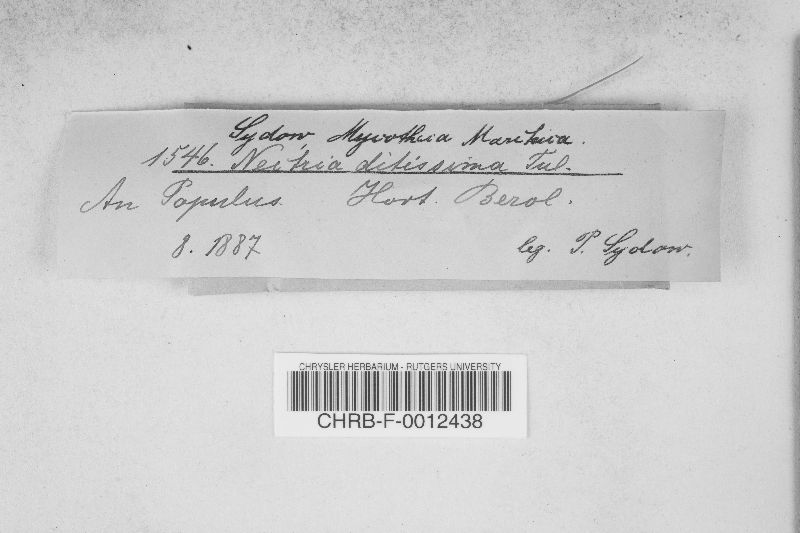 Sydow, Mycotheca Marchica.
1546. Nectria ditissima Tul.
An Populus Hort. Berol.
8. 1887 leg. P. Sydow.
CHRYSLER HERBARIUM - RUTGERS UNIVERSITY
CHRB-F-0012438